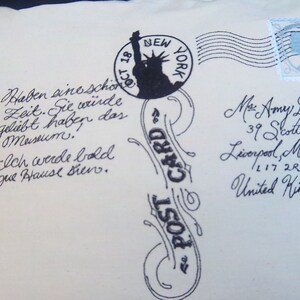 Haben eine schön
Zeit. Sie würde
geliebt haben das
Museum!
Ich werde bald
Hause sien.
OCT 18 NEW YORK
POST CARD
Ms. Amy L
39 Scot
Liverpool, M
L17 2R
United Ki